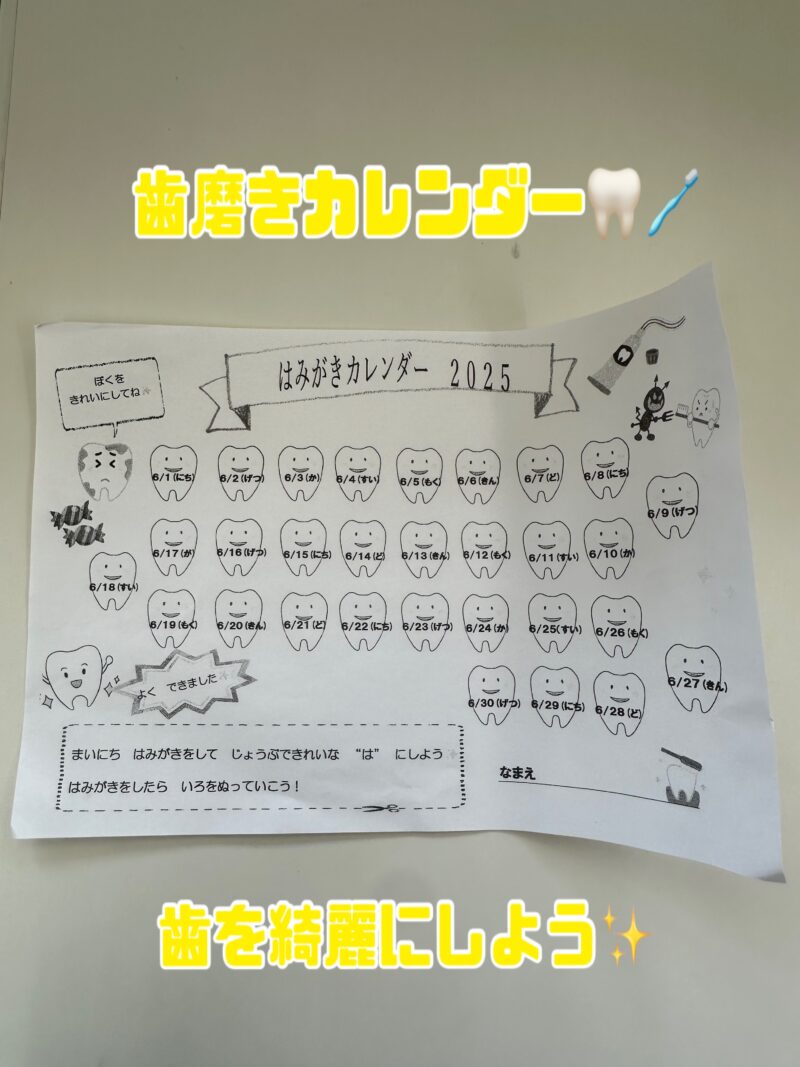 歯磨きカレンダー🦷🪥
はみがきカレンダー 2025
ぼくを
きれいにしてね
6/1(にち) 6/2(げつ) 6/3(か) 6/4(すい) 6/5(もく) 6/6(きん) 6/7(ど) 6/8(にち)
6/9(げつ)
6/17(が) 6/16(げつ) 6/15(にち) 6/14(ど) 6/13(きん) 6/12(もく) 6/11(すい) 6/10(か)
6/18(すい)
6/19(もく) 6/20(きん) 6/21(ど) 6/22(にち) 6/23(げつ) 6/24(か) 6/25(すい) 6/26(もく)
6/27(きん)
6/30(げつ) 6/29(にち) 6/28(ど)
よく できました
まいにち はみがきをして じょうぶできれいな “は” にしよう
はみがきをしたら いろをぬっていこう！
なまえ
歯を綺麗にしよう✨